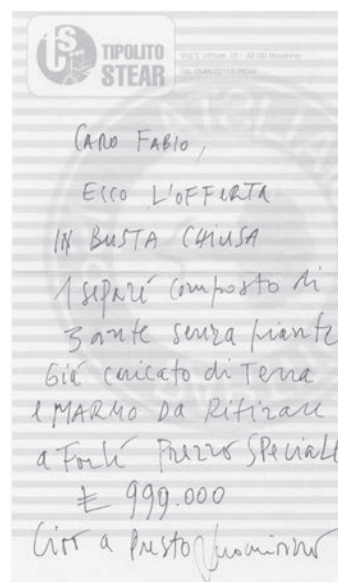 TIPOLITO
STEAR
CARO FABIO,
ECCO L'OFFERTA
IN BUSTA CHIUSA
1 separé composto di
3 ante senza piante
Già caricato di Terra
e MARMO DA Ritirare
a Forlì Prezzo SPeciale
£ 999.000
Ciao a presto